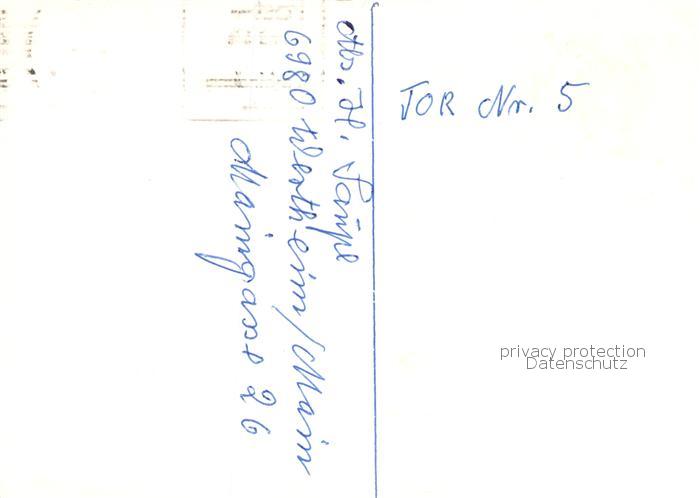 Abs. H. Saupe
6980 Wertheim/Main
Maingasse 26
TOR Nr. 5
privacy protection
Datenschutz